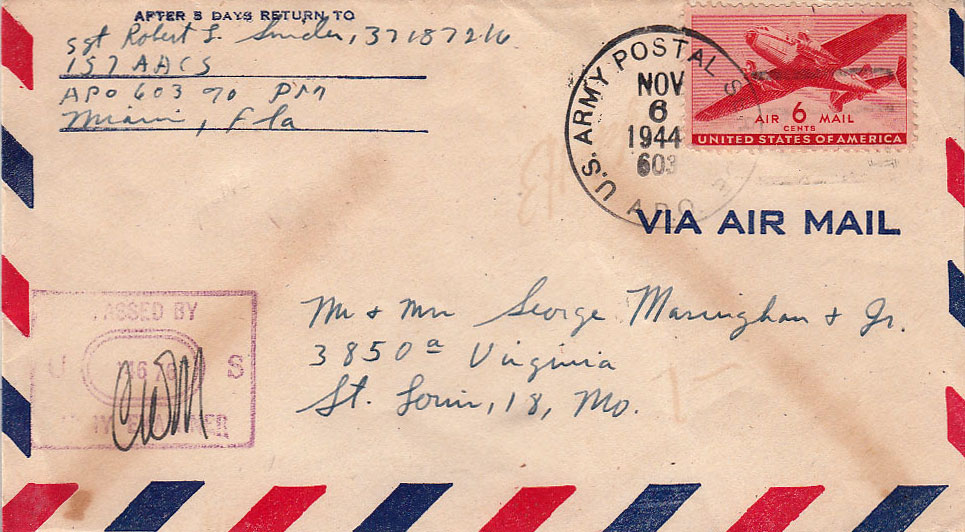 AFTER 5 DAYS RETURN TO
Sgt Robert L. Snider, 37187216
157 AACS
APO 603 % PM
Miami, Fla
U.S. ARMY POSTAL S
NOV
6
1944
603
A.P.O.
AIR 6 MAIL
CENTS
UNITED STATES OF AMERICA
VIA AIR MAIL
Mr & Mrs George Maringhan & Jr.
3850a Virginia
St. Louis, 18, Mo.
ASSED BY
U S
CWM